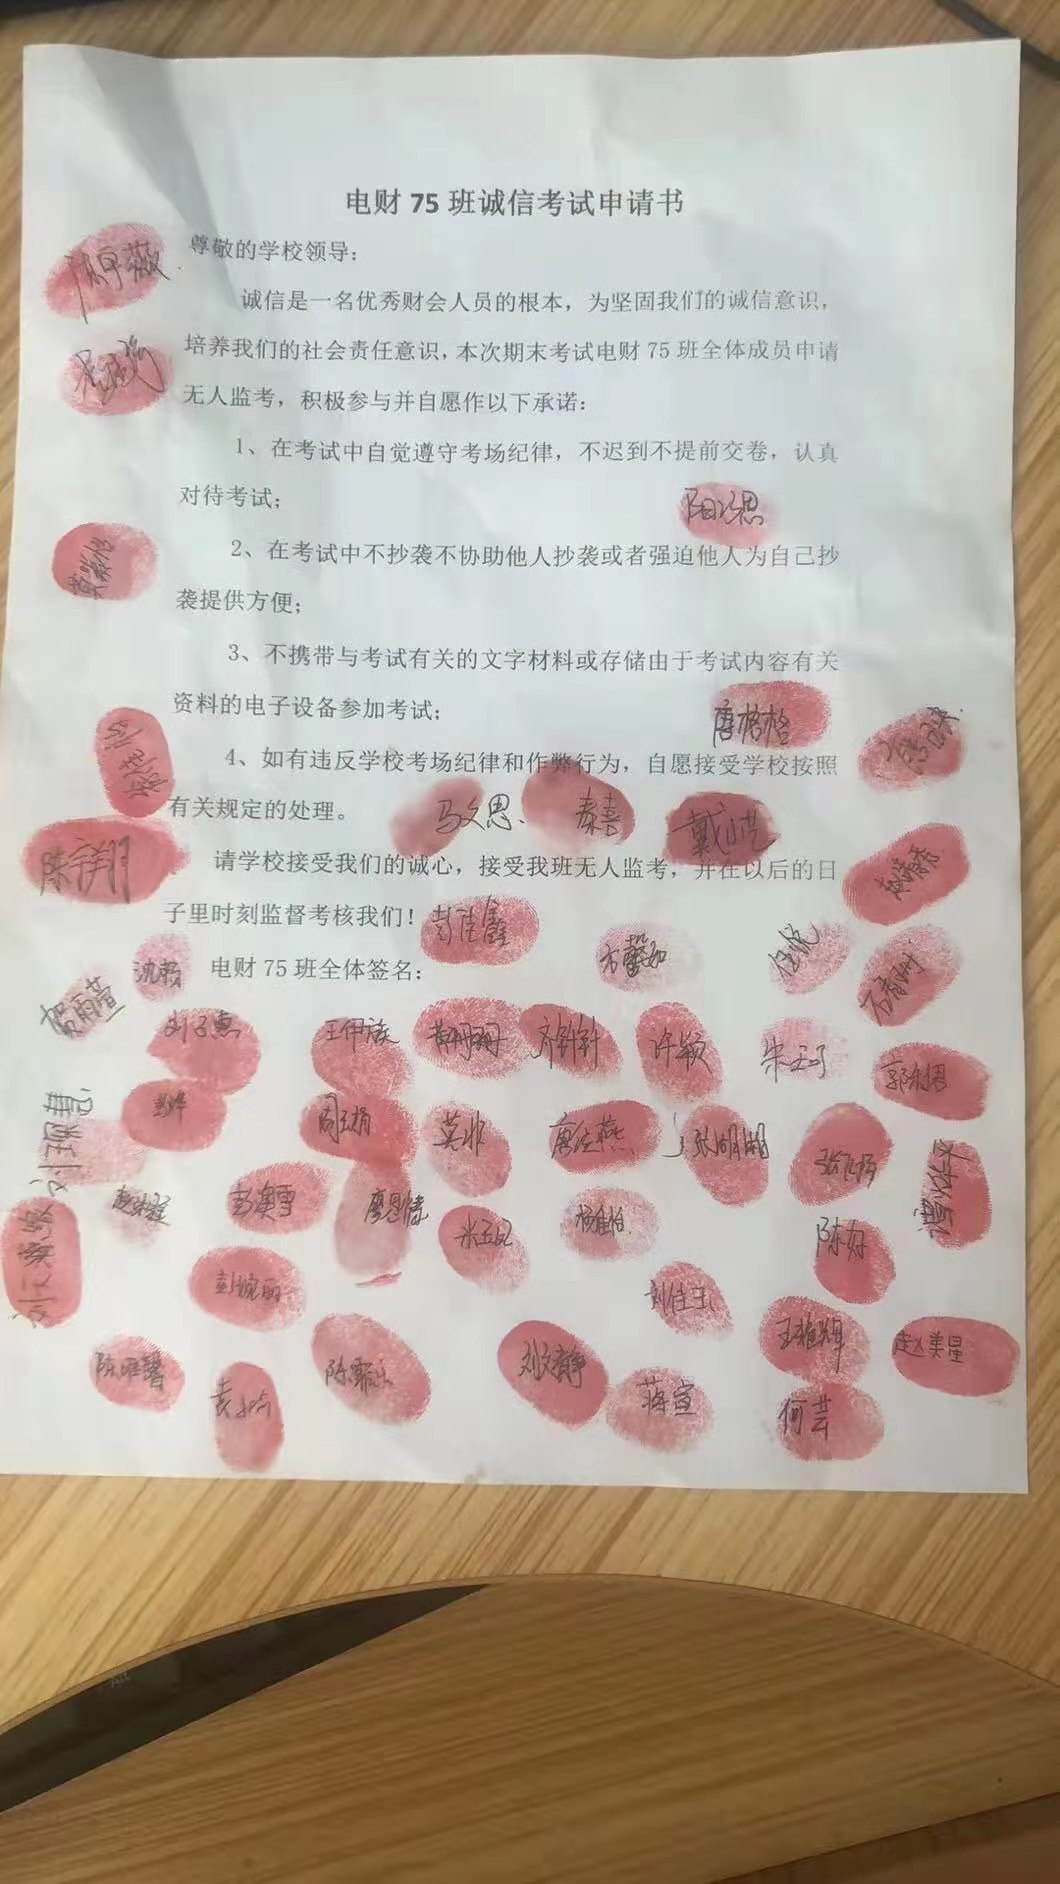 电财 75 班诚信考试申请书
尊敬的学校领导：
诚信是一名优秀财会人员的根本，为坚固我们的诚信意识，
培养我们的社会责任意识，本次期末考试电财 75 班全体成员申请
无人监考，积极参与并自愿作以下承诺：
1、在考试中自觉遵守考场纪律，不迟到不提前交卷，认真
对待考试；
2、在考试中不抄袭不协助他人抄袭或者强迫他人为自己抄
袭提供方便；
3、不携带与考试有关的文字材料或存储由于考试内容有关
资料的电子设备参加考试；
唐格格
4、如有违反学校考场纪律和作弊行为，自愿接受学校按照
有关规定的处理。
马文思
秦喜
陈宇翔
请学校接受我们的诚心，接受我班无人监考，并在以后的日
子里时刻监督考核我们！
彭佳鑫
方馨如
电财 75 班全体签名：
贺雨萱
王伊族
黄珊珊
齐针针
许颖
周玉娟
莫非
唐佳燕
张湖湘
廖恩情
米五民
杨佳怡
陈好
彭婉丽
刘佳玉
赵美星
刘文静
蒋宣
何芸